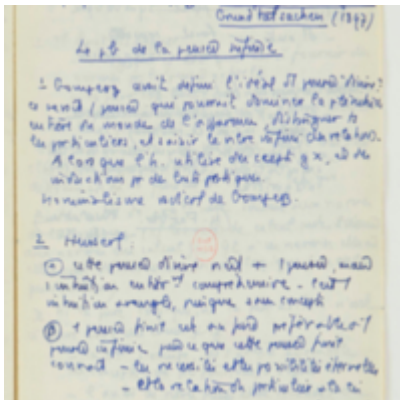 Grundtatsachen (1897)
Le pb de la pensée infinie
1. Gomperz avait défini l'idéal d'1 pensée divine :
ce serait 1 pensée qui pourrait dominer la plénitude
entière du monde de l'apparence, distinguer ts
les particuliers, et saisir le nbre infini des relations.
Alors que l'h. utilise des cepts gx, et des
inductions pr de buts pratiques.
Nominalisme radical de Gomperz.
2. Husserl :
cette pensée divine n'est + 1 pensée, mais
1 intuition entièrt compréhensive - c'est 1
intuition aveugle, puisque sans concepts
1 pensée finie est au fond préférable à 1
pensée infinie, parce que cette pensée finie
connaît - les nécessités et les possibilités éternelles
- et la relation du particulier à la loi